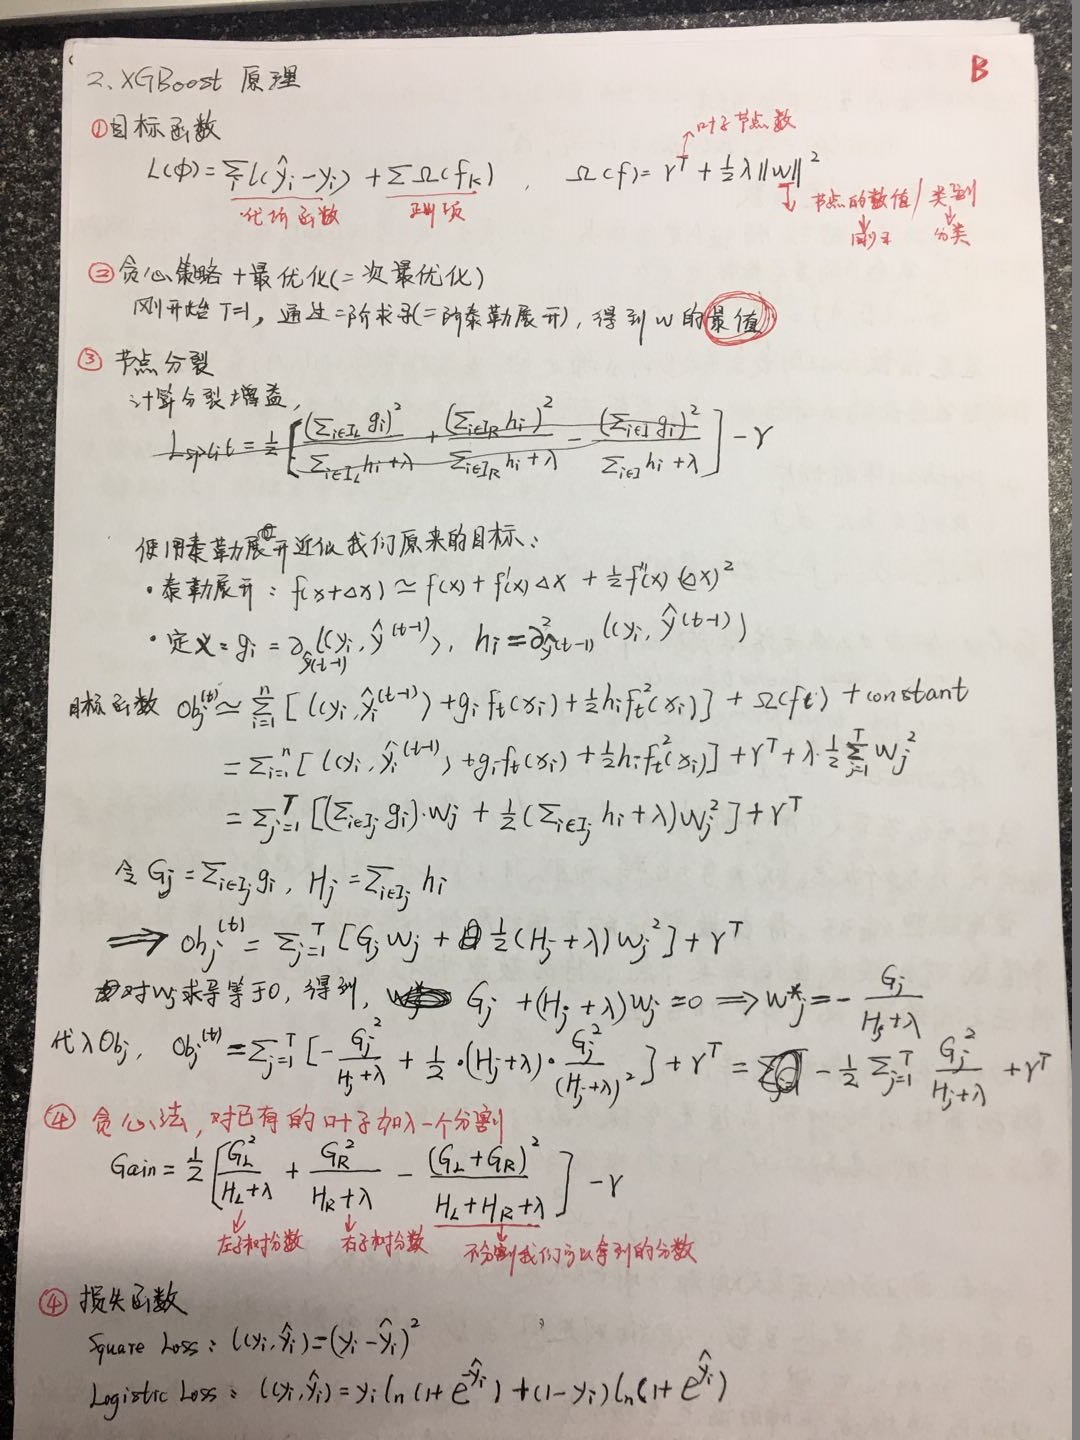 B
2、XGBoost 原理
①目标函数
L(φ)=Σᵢ l(ŷᵢ-yᵢ) + ΣΩ(fₖ) , Ω(f)= γT + ½λ||w||²
叶子节点数
代价函数 正则项
节点的数值/类别
回归 分类
②贪心策略+最优化(二次最优化)
刚开始 T=1, 通过二阶求导(二阶泰勒展开), 得到 w 的最值
③ 节点分裂
计算分裂增益,
Lsplit = ½ [ (Σi∈I_L gᵢ)² / (Σi∈I_L hᵢ+λ) + (Σi∈I_R hᵢ)² / (Σi∈I_R hᵢ+λ) - (Σi∈I gᵢ)² / (Σi∈I hᵢ+λ) ] - γ
使用泰勒展开近似我们原来的目标:
· 泰勒展开: f(x+Δx) ≃ f(x) + f'(x)Δx + ½f''(x)(Δx)²
· 定义: gᵢ = ∂_ŷ(t-1) l(yᵢ, ŷ^(t-1)), hᵢ = ∂²_ŷ(t-1) l(yᵢ, ŷ^(t-1))
目标函数 Obj^(t) ≃ Σ_{i=1}^n [ l(yᵢ, ŷᵢ^(t-1)) + gᵢfₜ(xᵢ) + ½hᵢfₜ²(xᵢ) ] + Ω(fₜ) + constant
= Σ_{i=1}^n [ l(yᵢ, ŷᵢ^(t-1)) + gᵢfₜ(xᵢ) + ½hᵢfₜ²(xᵢ) ] + γT + λ·½ Σ_{j=1}^T wⱼ²
= Σ_{j=1}^T [ (Σi∈Iⱼ gᵢ)·wⱼ + ½(Σi∈Iⱼ hᵢ+λ)wⱼ² ] + γT
令 Gⱼ = Σi∈Iⱼ gᵢ, Hⱼ = Σi∈Iⱼ hᵢ
⟹ Obj^(t) = Σ_{j=1}^T [ Gⱼwⱼ + ½(Hⱼ+λ)wⱼ² ] + γT
对wⱼ求导等于0, 得到, Gⱼ + (Hⱼ+λ)wⱼ = 0 ⟹ wⱼ* = - Gⱼ / (Hⱼ+λ)
代入Obj, Obj^(t) = Σ_{j=1}^T [ - Gⱼ²/(Hⱼ+λ) + ½·(Hⱼ+λ)·Gⱼ²/(Hⱼ+λ)² ] + γT = -½ Σ_{j=1}^T Gⱼ²/(Hⱼ+λ) + γT
④ 贪心法, 对已有的叶子加入一个分割
Gain = ½ [ G_L²/(H_L+λ) + G_R²/(H_R+λ) - (G_L+G_R)²/(H_L+H_R+λ) ] - γ
左子树分数 右子树分数 不分割我们可以拿到的分数
④ 损失函数
Square Loss: l(yᵢ,ŷᵢ)=(yᵢ-ŷᵢ)²
Logistic Loss: l(yᵢ,ŷᵢ)= yᵢ ln(1+e^{-ŷᵢ}) + (1-yᵢ) ln(1+e^{ŷᵢ})